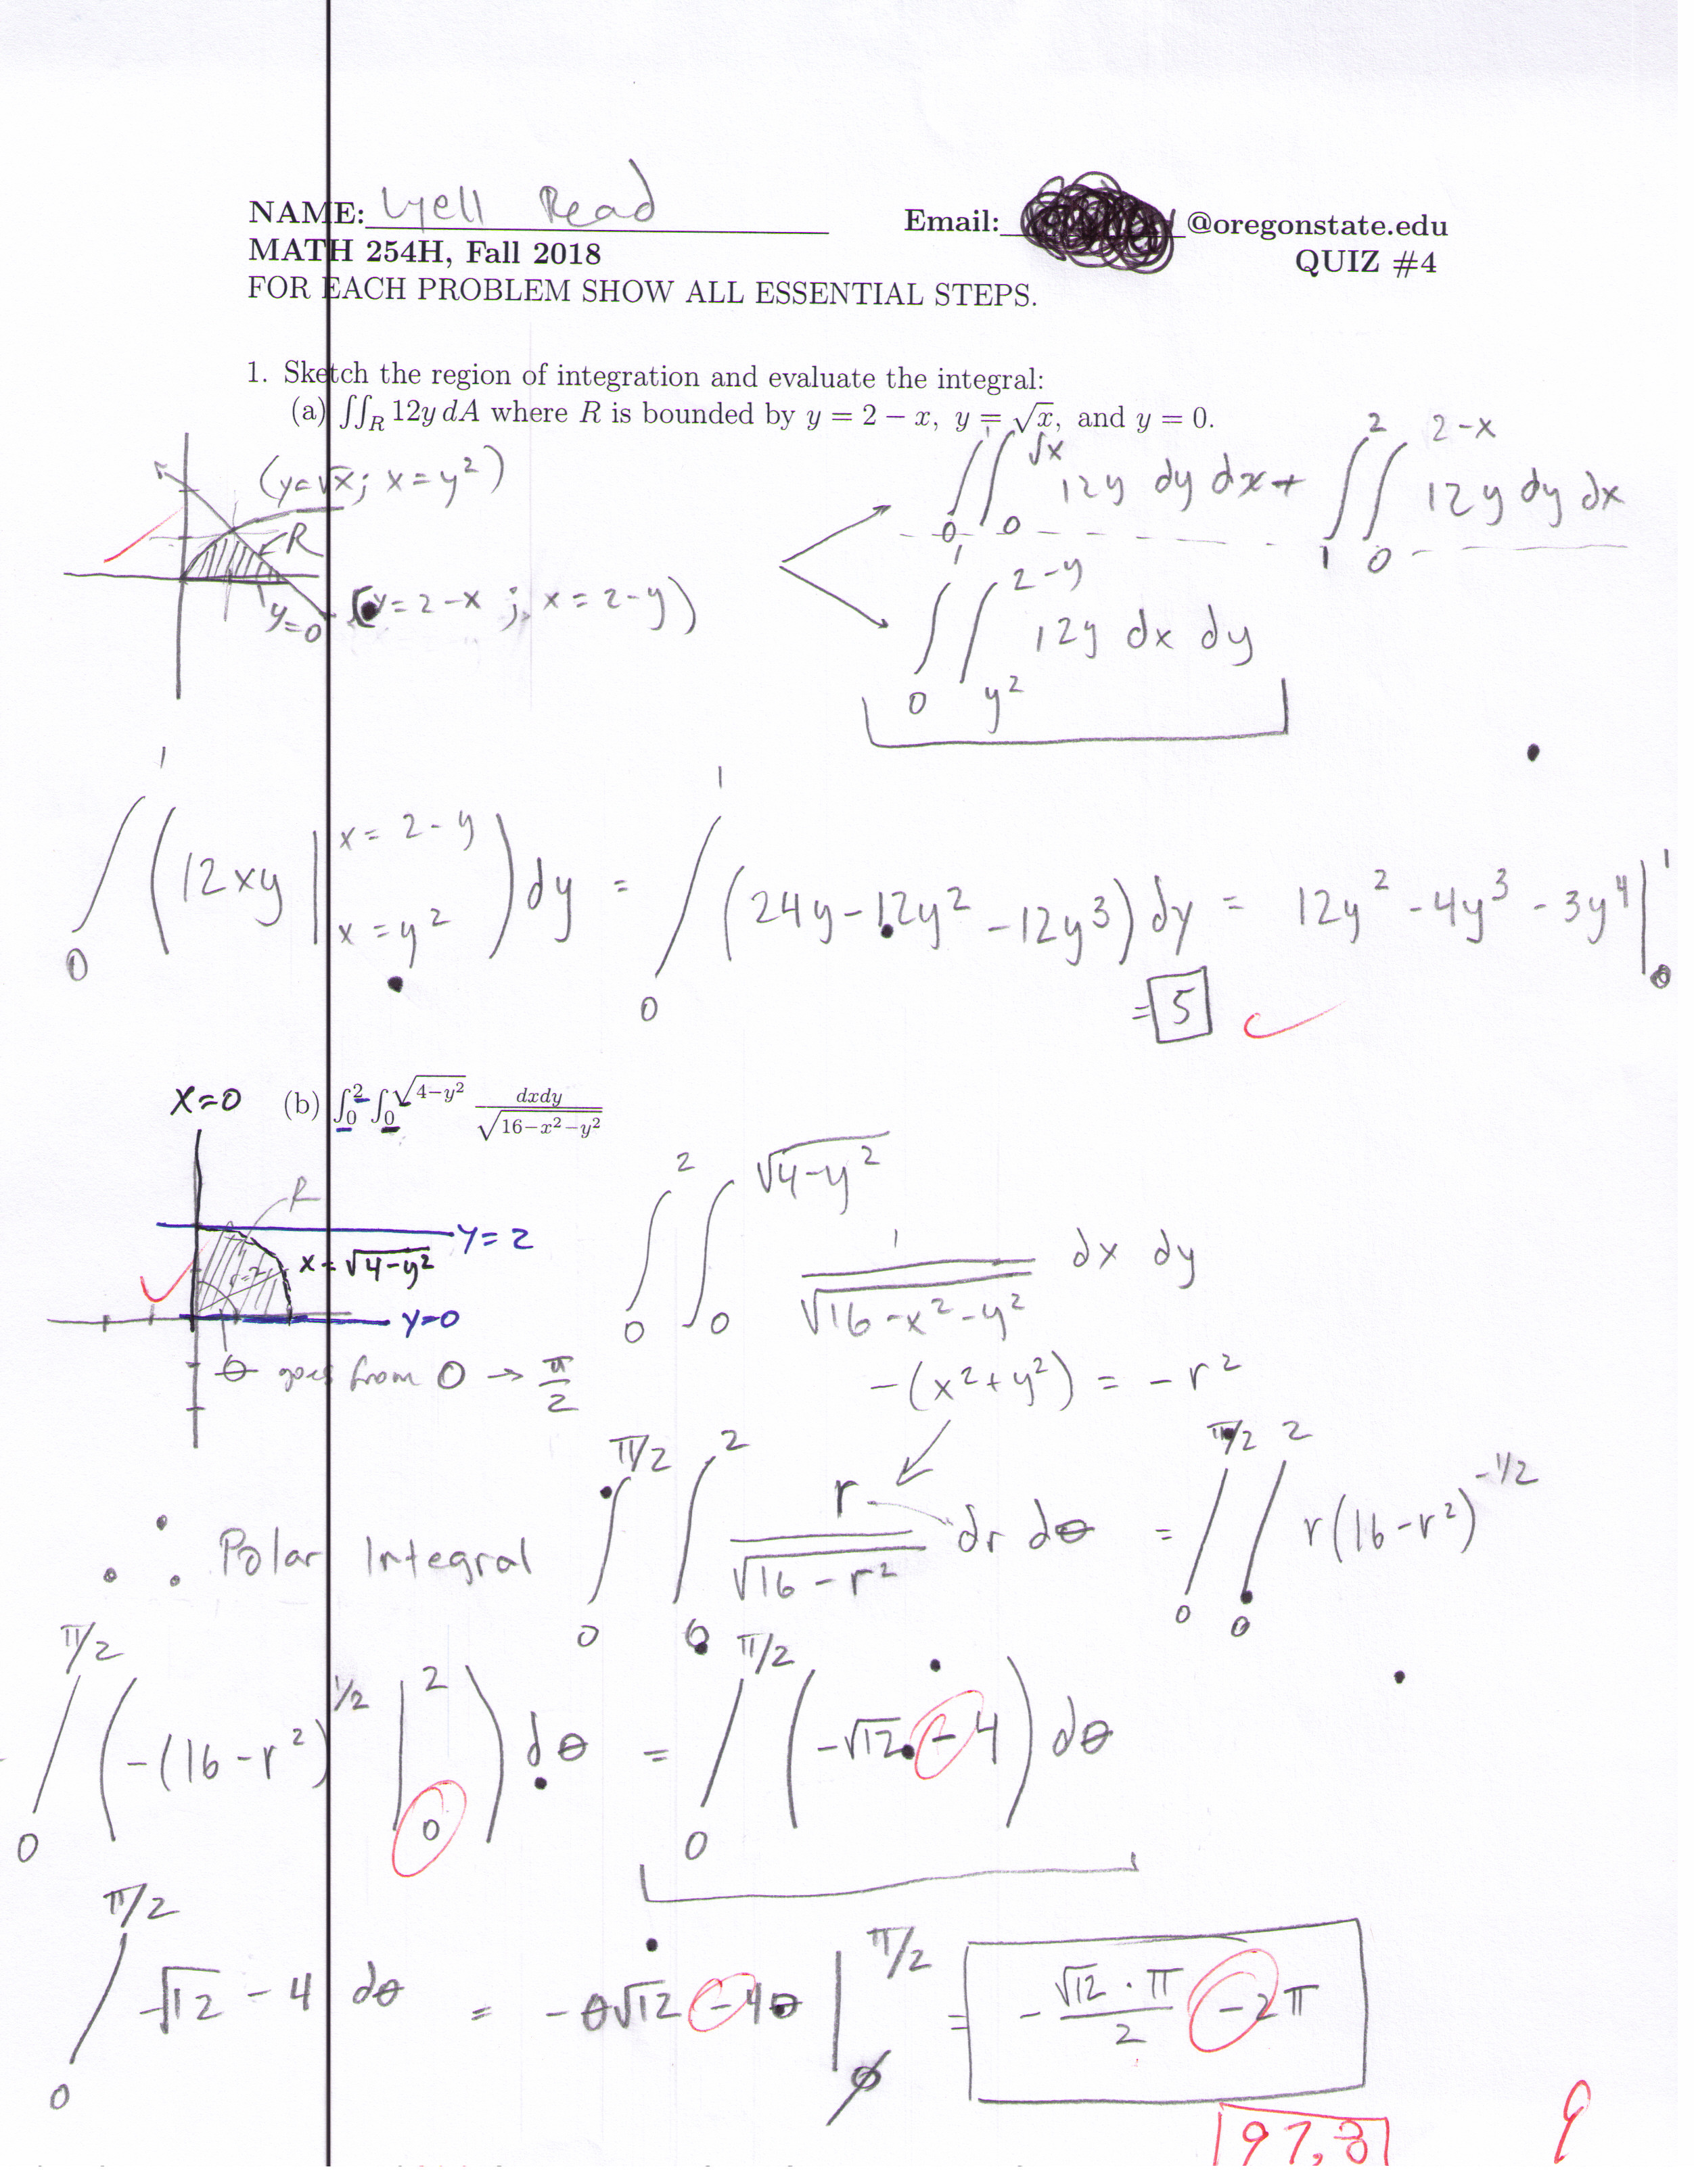 NAME: Lyell Read Email: @oregonstate.edu
MATH 254H, Fall 2018 QUIZ #4
FOR EACH PROBLEM SHOW ALL ESSENTIAL STEPS.
1. Sketch the region of integration and evaluate the integral:
(a) ∫∫_R 12y dA where R is bounded by y = 2 − x, y = √x, and y = 0.
(y=√x; x=y²)
R
y=0
(y=2-x; x=2-y)
∫₀¹∫₀^√x 12y dy dx + ∫₁²∫₀^(2-x) 12y dy dx
∫₀¹∫_(y²)^(2-y) 12y dx dy
∫₀¹ (12xy |_(x=y²)^(x=2-y)) dy = ∫₀¹ (24y-12y²-12y³) dy = 12y²-4y³-3y⁴|₀¹
= 5
x=0 (b) ∫₀²∫₀^√(4−y²) dxdy/√(16−x²−y²)
R
y=2
x=√(4-y²)
r=2
y=0
θ goes from 0 → π/2
∫₀²∫₀^√(4-y²) 1/√(16-x²-y²) dx dy
-(x²+y²) = -r²
∴ Polar Integral ∫₀^(π/2)∫₀² r/√(16-r²) dr dθ = ∫₀^(π/2)∫₀² r(16-r²)^(-1/2)
∫₀^(π/2) (-(16-r²)^(1/2) |₀²) dθ = ∫₀^(π/2) (-√12 - 4) dθ
∫₀^(π/2) -√12 - 4 dθ = -θ√12 - 4θ |₀^(π/2) = -(√12·π)/2 - 2π
97.8
9